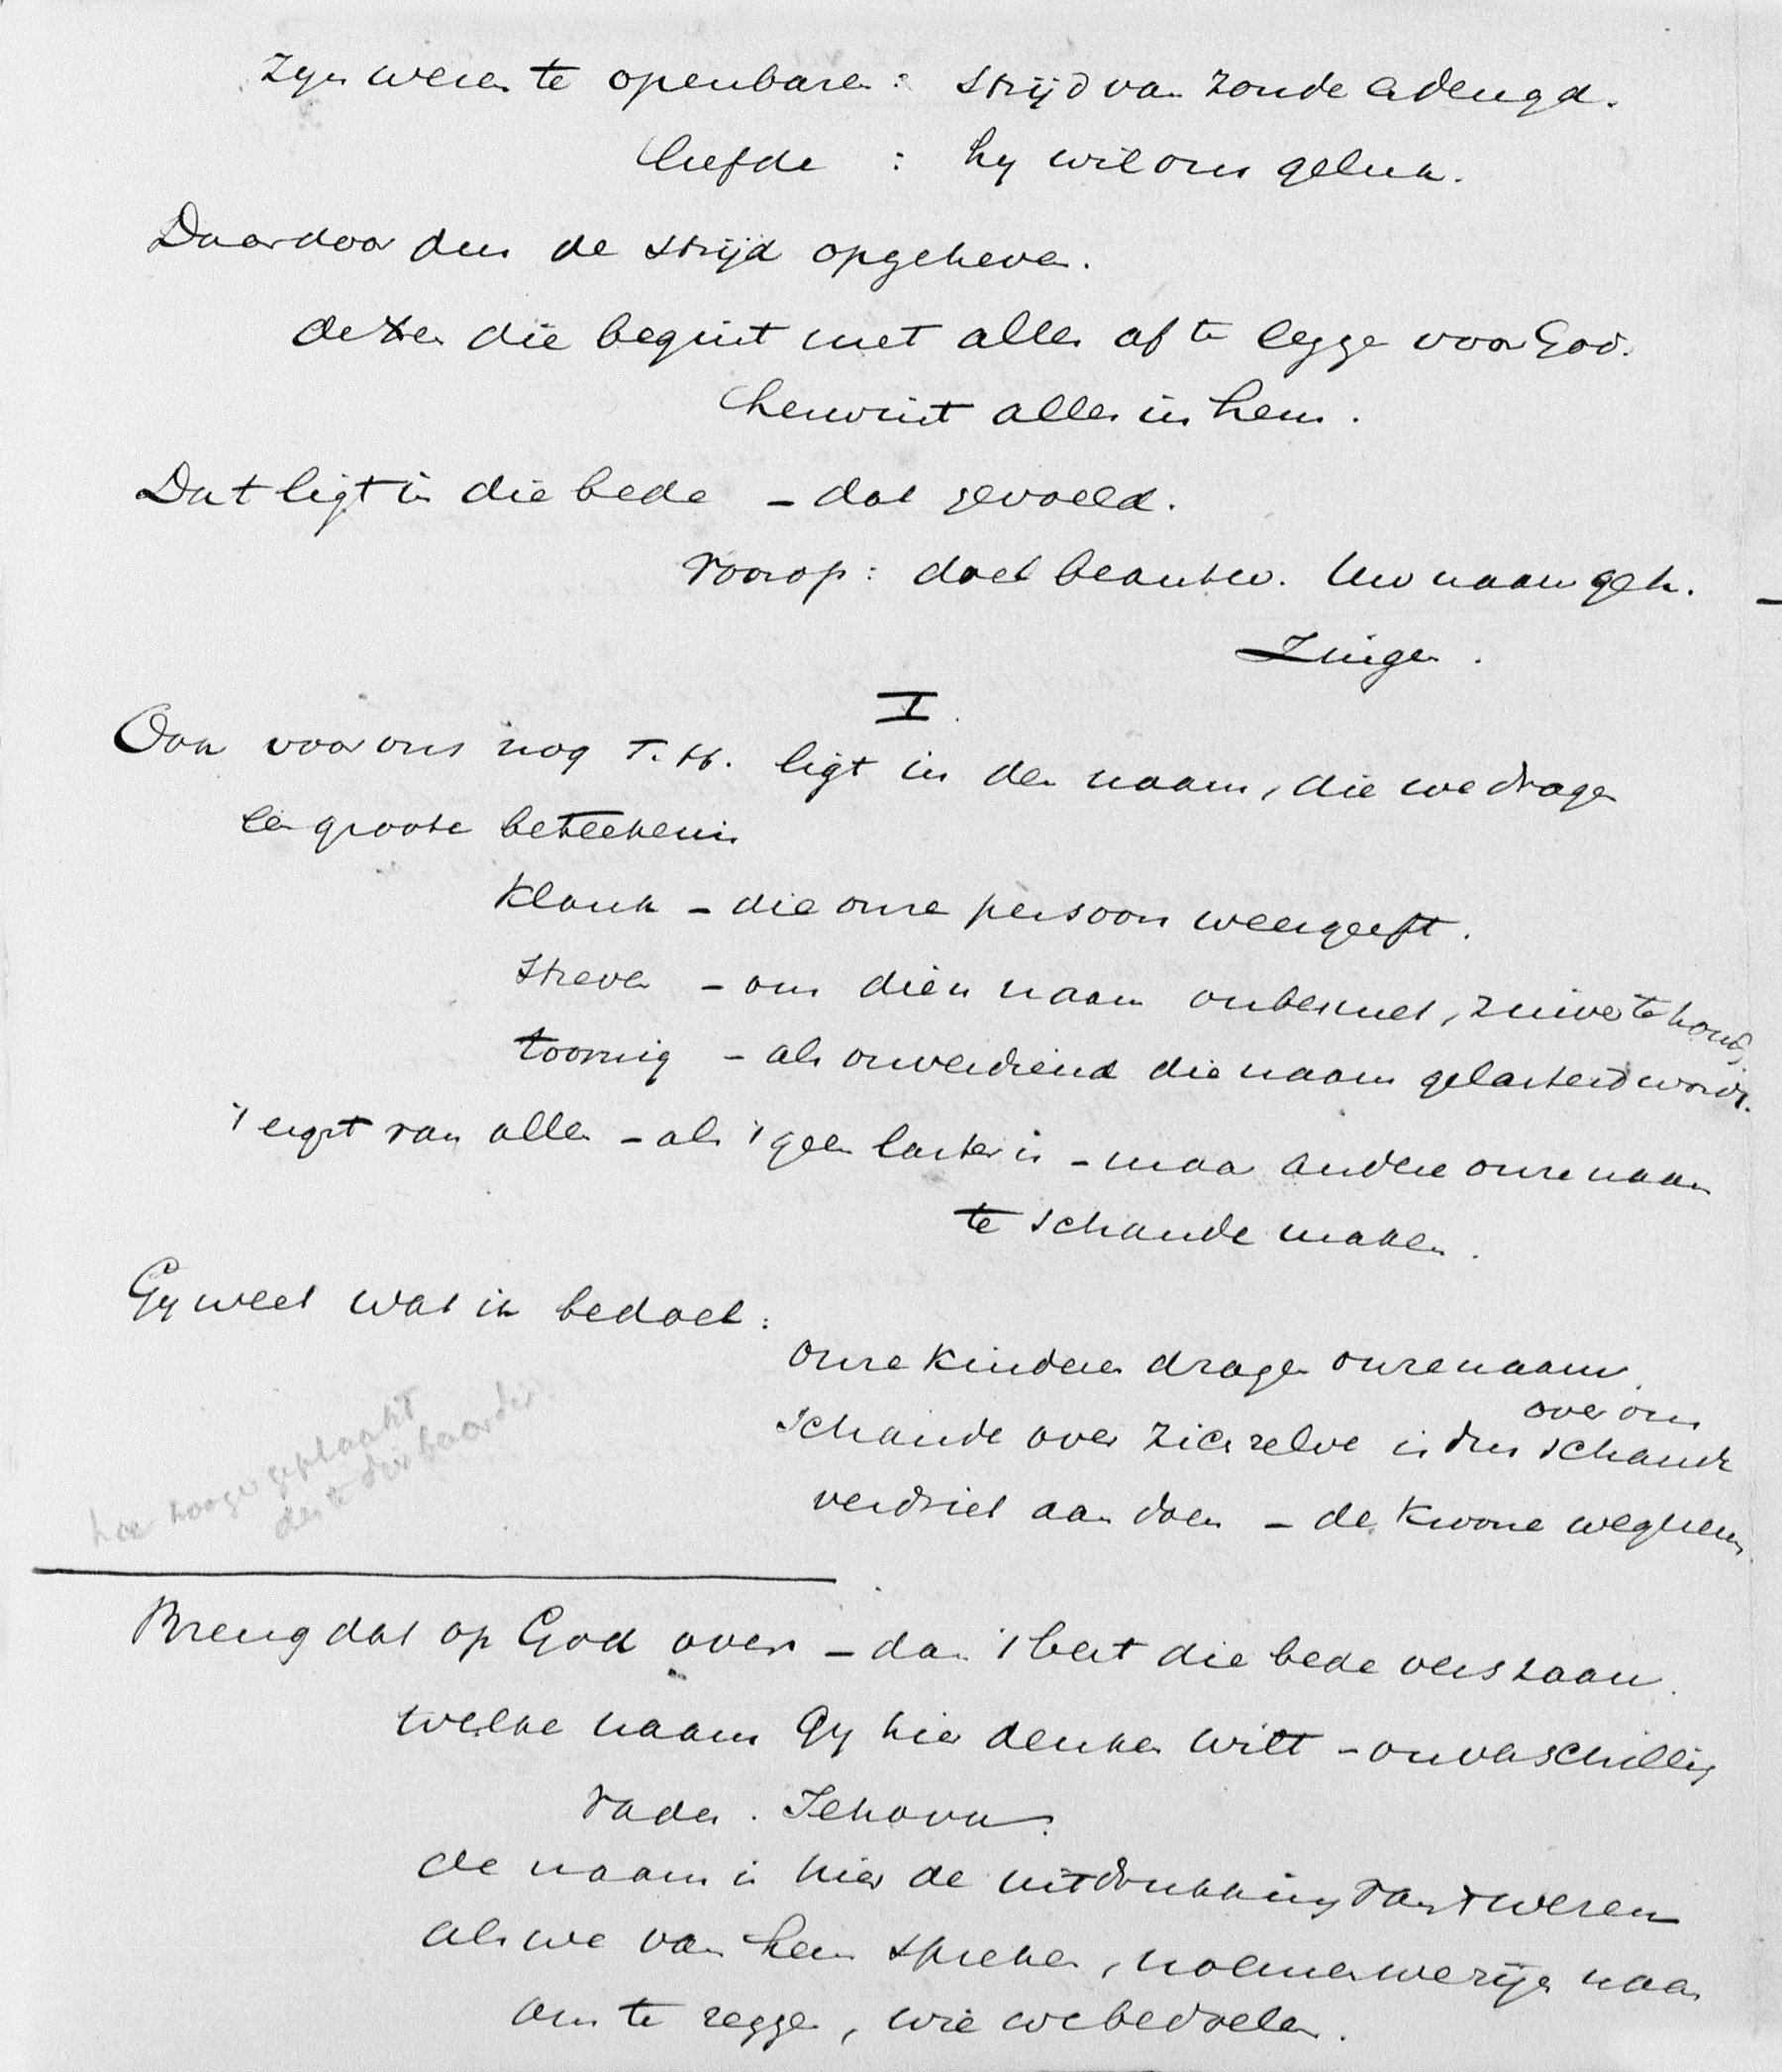 Zyn wezen te openbaren : strijd van zonde & deugd.
liefde : hy wil ons geluk.
Daardoor dus de strijd opgeheven.
die begint met alles af te leggen voor God.
herwint alles in hem.
Dat ligt in die bede - dat gevoeld.
Voorop: doel beantw. Uw naam geh. -
Zingen.
I.
Ook voor ons nog T. H. ligt in den naam, die we dragen
een groote beteekenis
Klank - die onze persoon weergeeft.
Streven - om dien naam onbesmet, zuiver te houden,
toornig - als onverdiend die naam gelasterd wordt.
't ergst van alles - als 't geen laster is - maar anderen onze naam
te schande maken.
Gy weet wat ik bedoel:
onze kinderen dragen onze naam.
over ons
Schande over zich zelve is dus schande
verdriet aandoen - de Kroone wegnemen
hoe hooger geplaatst
Breng dat op God over - dan 't best die bede verstaan.
welke naam Gy hier denken wilt - onverschillig
Vader. Jehova.
de naam is hier de uitdrukking van 't wezen
als we van hem spreken, noemen we zijn naam
om te zeggen, wie we bedoelen.